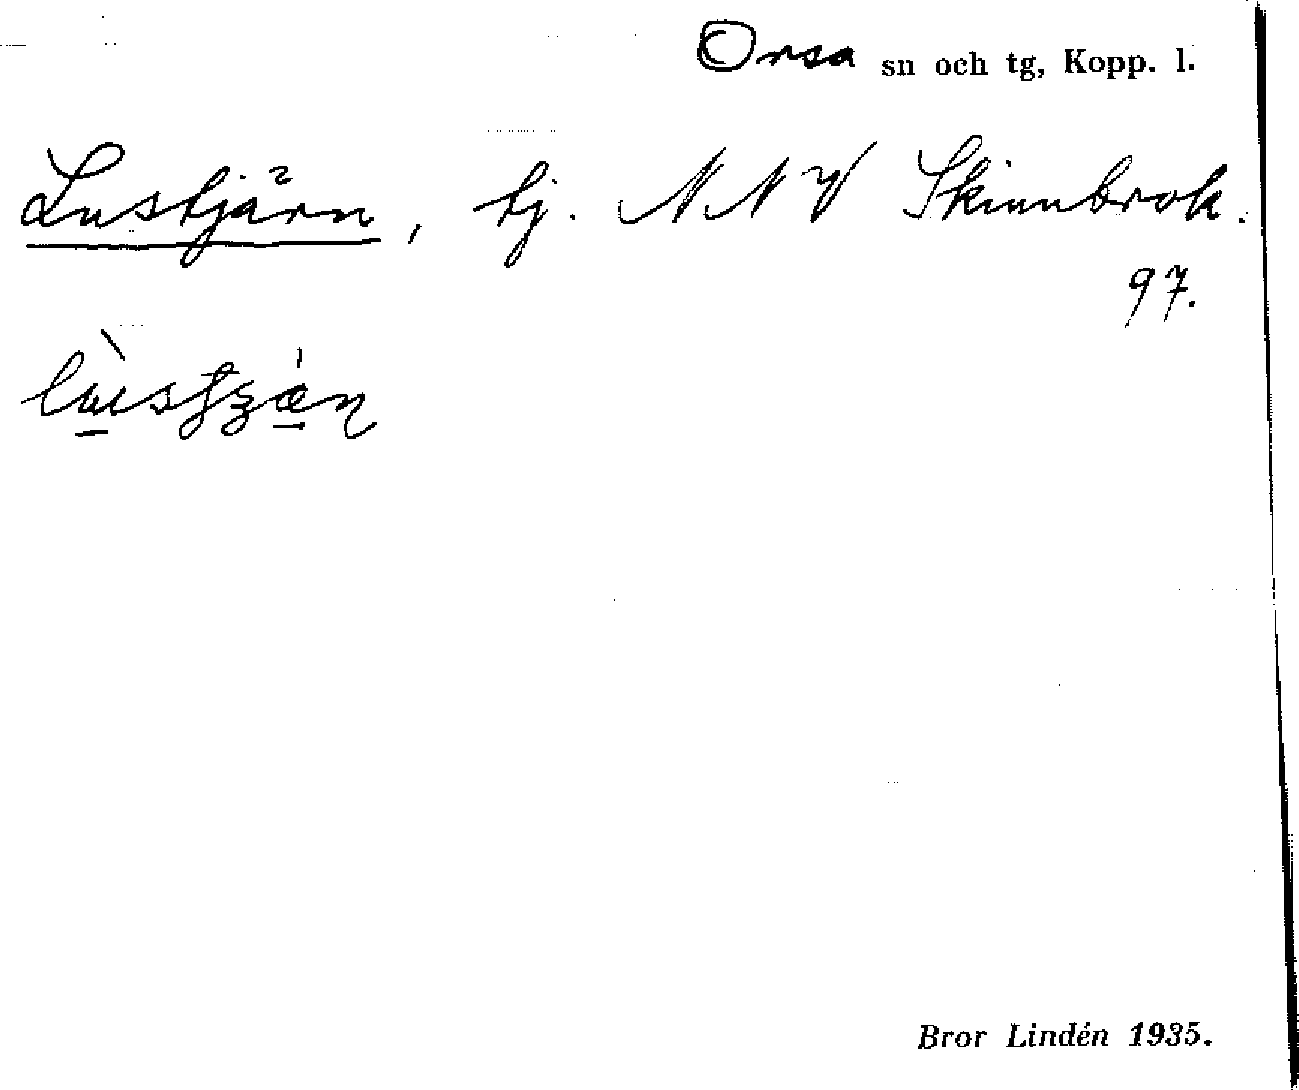 Orsa sn och tg, Kopp. l.
Lustjärn, tj. NNV Skinnbrok.
97.
Bror Lindén 1935.